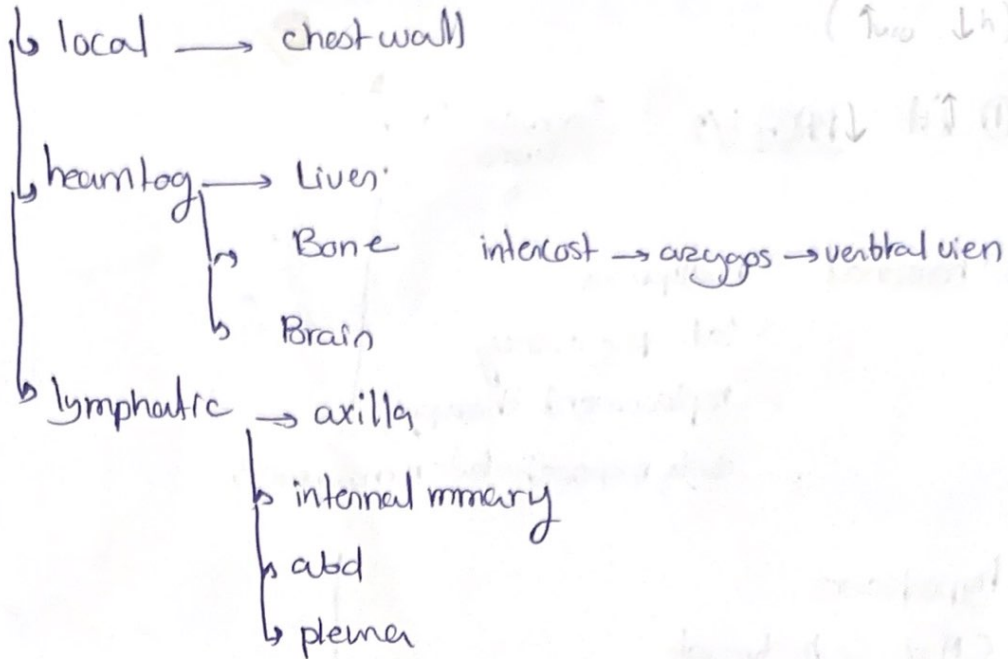 local → chest wall
heamtog → Liver
Bone intercost → azygos → verbtral vien
Brain
lymphatic → axilla
internal mmary
abd
plema